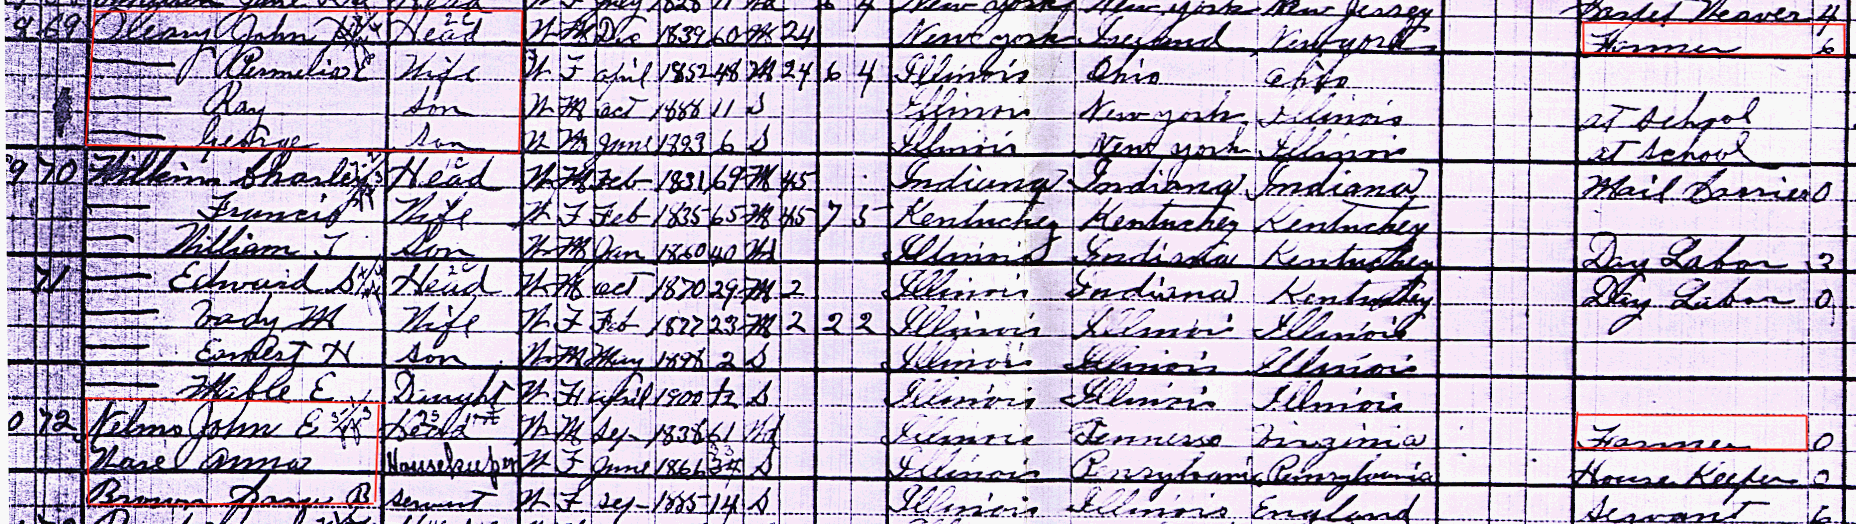 Head W F 1828 Wd 6 4 New York New York New Jersey Carpet Weaver 4
69 Oleary John Head W M Dec 1839 60 M 24 New york Ireland New york Farmer 6
Permelia Wife W F april 1852 48 M 24 6 4 Illinois Ohio ohio
Ray Son W M oct 1888 11 S Illinois New york Illinois at School
George Son W M June 1893 6 S Illinois New york Illinois at School
70 Wilkins Charley Head W M Feb 1831 69 M 45 Indiana Indiana Indiana Mail Carrier 0
Francis Wife W F Feb 1835 65 M 45 7 5 Kentuckey Kentuckey Kentuckey
William T Son W M Jan 1860 40 Wd Illinois Indiana Kentuckey Day Labor 3
71 Edward S Head W M oct 1870 29 M 2 Illinois Indiana Kentuckey Day Labor 0
M Wife W F Feb 1877 23 M 2 2 2 Illinois Illinois Illinois
Earnest H Son W M May 1898 2 S Illinois Illinois Illinois
Mable E Daught W F april 1900 S Illinois Illinois Illinois
72 Nelms John E Head W M Sep 1838 61 Wd Illinois Tennesse Virginia Farmer 0
Anna Housekeeper W F June 1866 S Illinois Pensylvania Pensylvania House Keeper 0
Brown B Servant W F Sep 1885 14 S Illinois Illinois England Servant 6